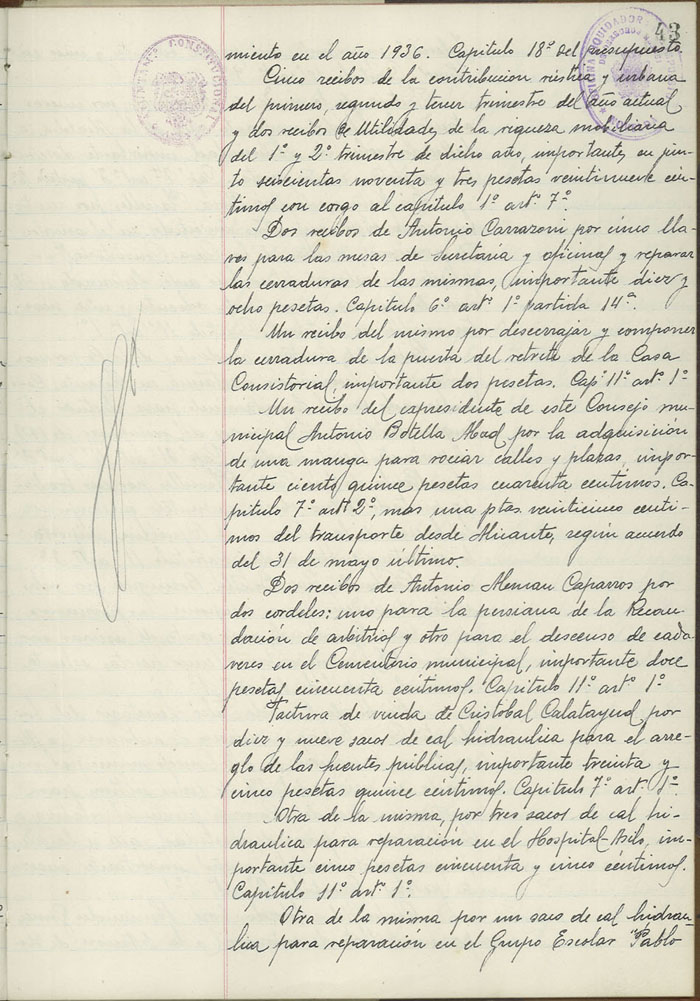 43
miento en el año 1936. Capitulo 18º del presupuesto.
Cinco recibos de la contribucion rústica y urbana
del primero, segundo y tercer trimestre del año actual
y dos recibos de Utilidades de la riqueza mobiliaria
del 1º y 2º trimestre de dicho año, importantes en jun-
to seiscientas noventa y tres pesetas veintinueve cén-
timos con cargo al capitulo 1º artº 7º.
Dos recibos de Antonio Carrazoni por cinco lla-
ves para las mesas de Secretaría y oficinas y reparar
las cerraduras de las mismas, importante diez y
ocho pesetas. Capitulo 6º artº 1º partida 14ª.
Un recibo del mismo por descerrajar y componer
la cerradura de la puerta del retrete de la Casa
Consistorial, importante dos pesetas. Capº 11º artº 1º
Un recibo del expresidente de este Consejo mu-
nicipal Antonio Botella Abad por la adquisición
de una manga para rociar calles y plazas, impor-
tante ciento quince pesetas cuarenta centimos. Ca-
pitulo 7º artº 2º, mas una ptas. veinticinco centi-
mos del transporte desde Alicante, según acuerdo
del 31 de mayo último.
Dos recibos de Antonio Aleman Caparros por
dos cordeles: uno para la persiana de la Recau-
dación de arbitrios y otro para el descenso de cadá-
veres en el Cementerio municipal, importante doce
pesetas cincuenta céntimos. Capitulo 11º artº 1º
Factura de viuda de Cristobal Calatayud por
diez y nueve sacos de cal hidraulica para el arre-
glo de las fuentes públicas, importante treinta y
cinco pesetas quince céntimos. Capitulo 7º artº 1º.
Otra de la misma, por tres sacos de cal hi-
draulica para reparación en el Hospital-Asilo, im-
portante cinco pesetas cincuenta y cinco céntimos.
Capitulo 11º artº 1º.
Otra de la misma por un saco de cal hidrau-
lica para reparación en el Grupo Escolar "Pablo